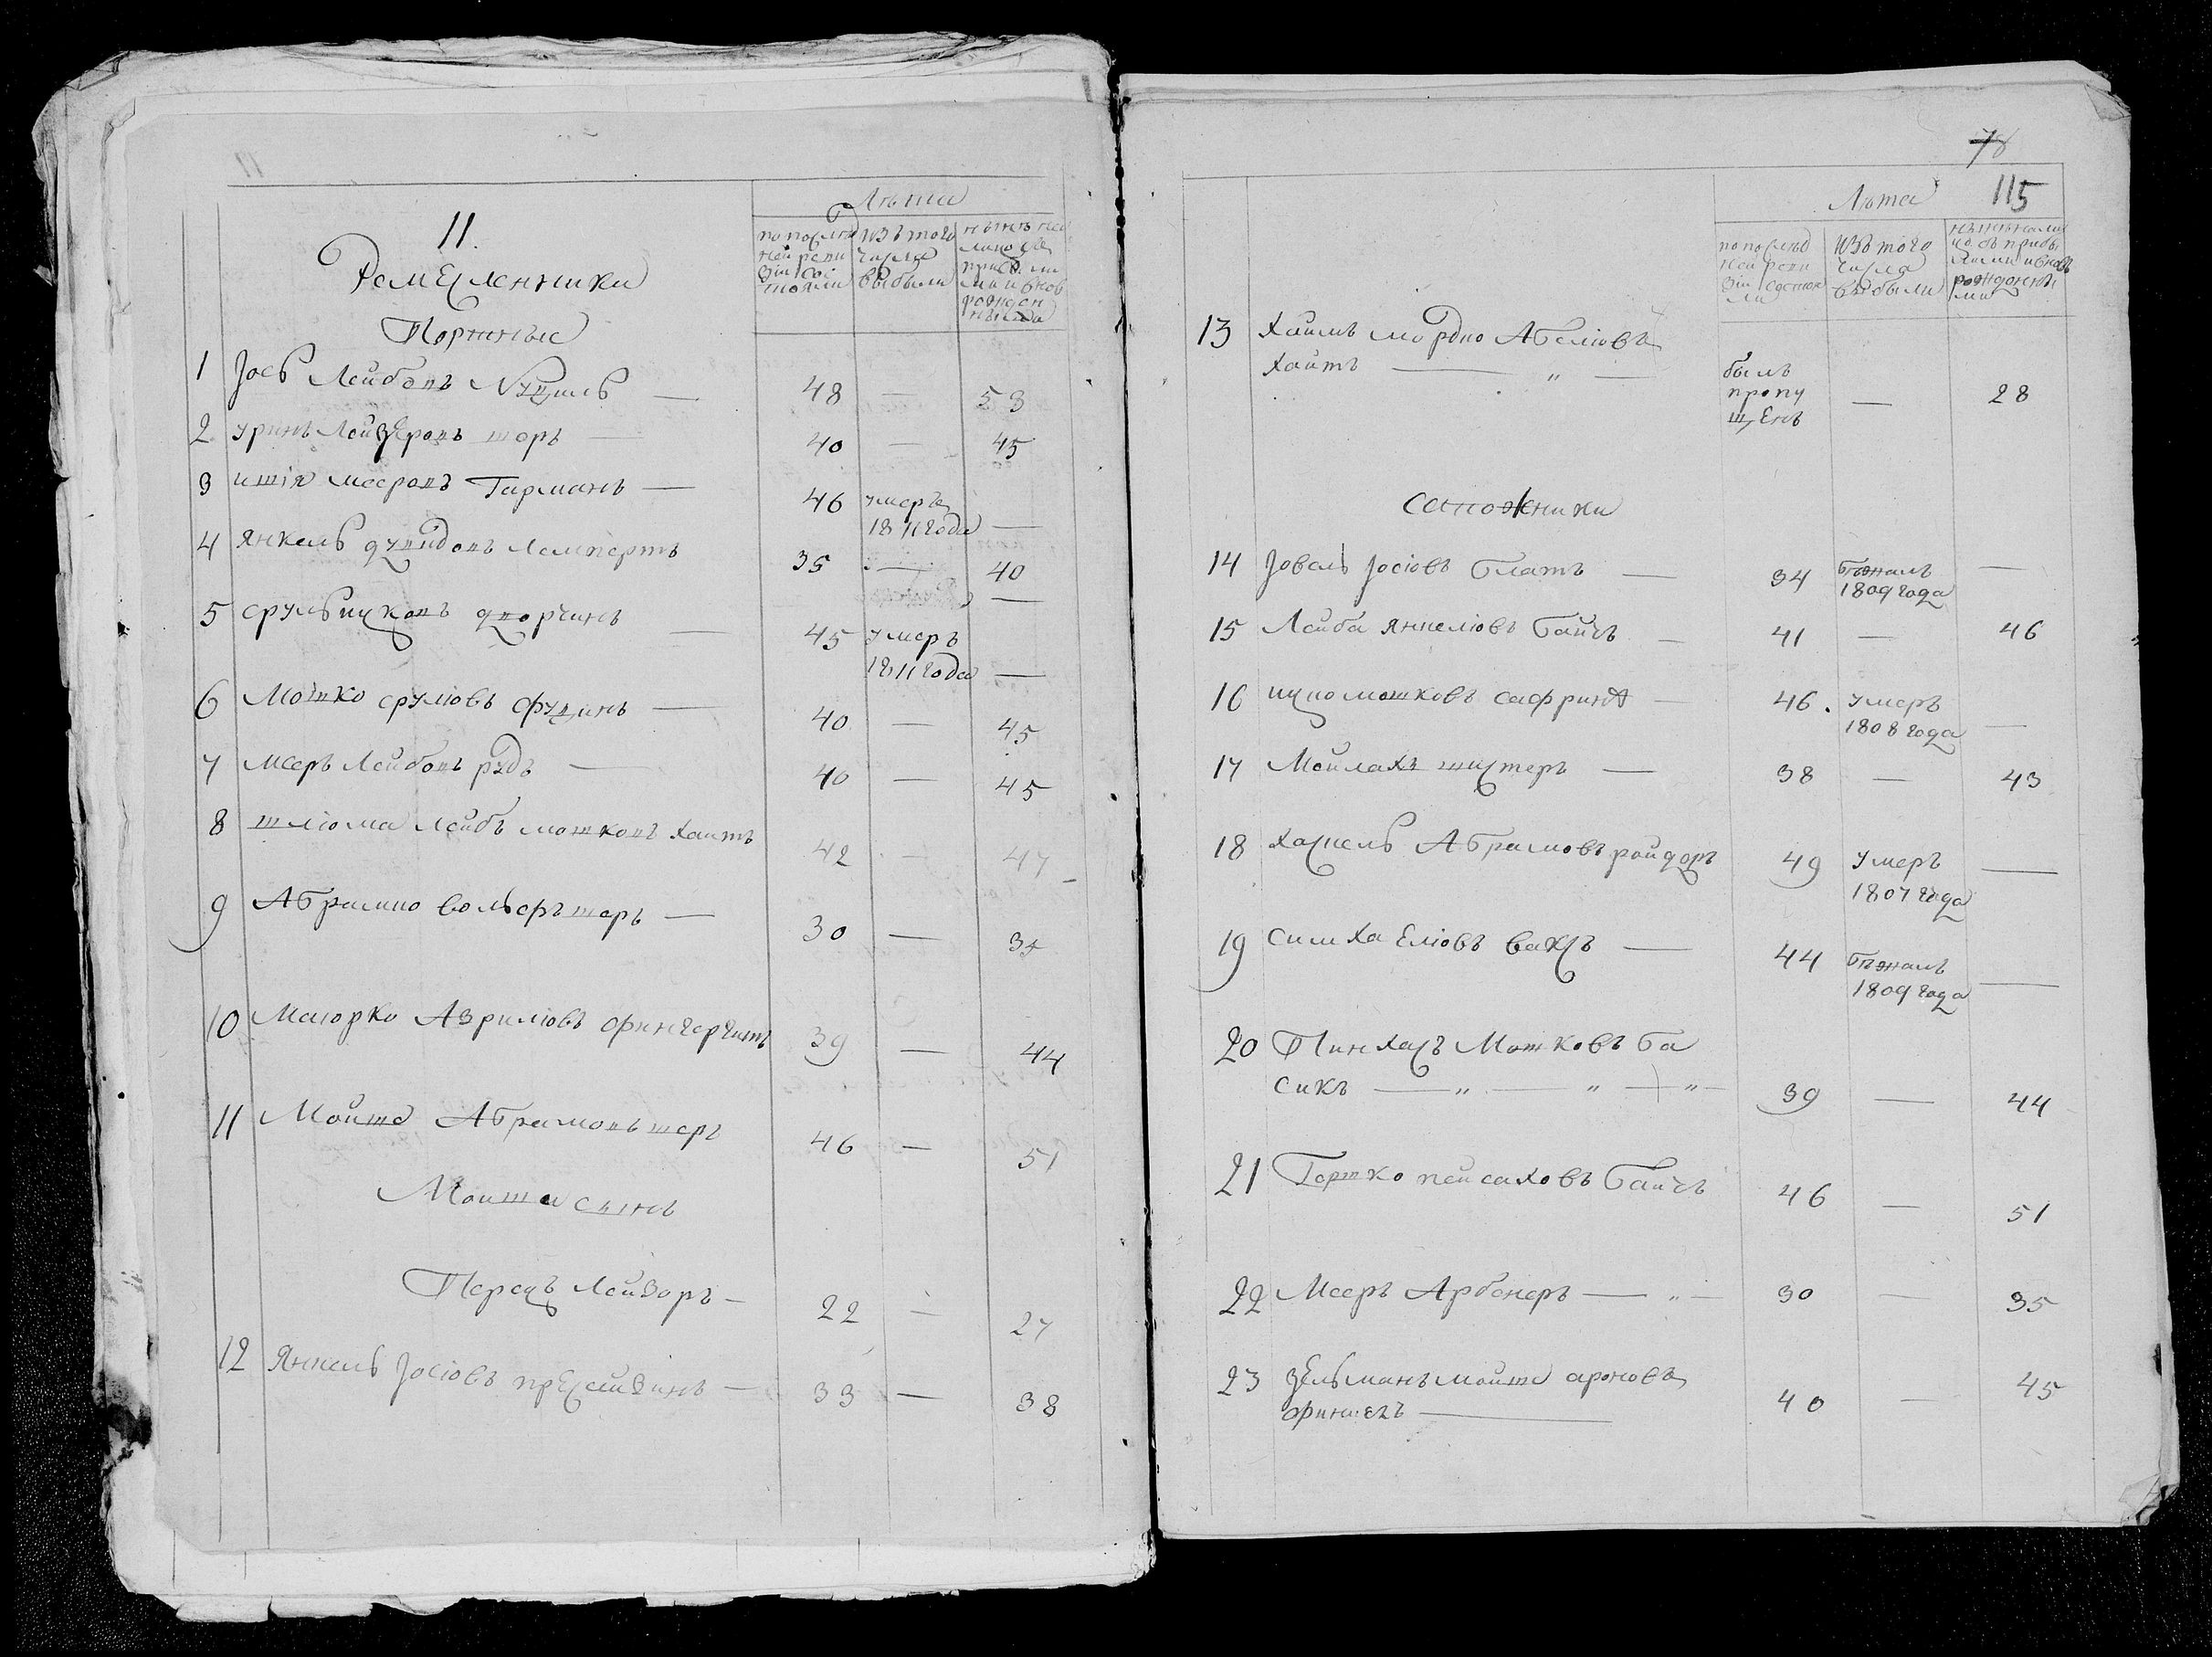 11.
Ремесленники
Портные
Лѣта
по послѣдней ревизіи состояли
изъ того числа выбыли
нынѣ на лицо съ прибылыми и вновь рожденными
1 Іось Лейбовъ Нудиль — 48 — 53
2 Уринъ Лейзеровъ шеръ — 40 — 45
3 ишія мееровъ Гарманъ — 46 умеръ
1811 года —
4 Янкель дувидовъ Лемпертъ 35 — 40
5 сруль ицковъ дворчинъ — 45 умеръ
1811 года —
6 Мошко срулiовъ — 40 — 45
7 Мееръ Лейбовъ рудъ — 40 — 45
8 шліома Лейбъ мошковъ Хаитъ 42 — 47
9 Абрамко вольфъ шеръ — 30 — 35
10 Маюрко Азриліовъ фингергитъ 39 — 44
11 Мойше Абрамовъ шеръ 46 — 51
Мойше сынъ
Перецъ Лейзоръ — 22 — 27
12 Янкель Іосіовъ — 33 — 38
78
115
Лѣта
по послѣдней ревизіи состояли
изъ того числа выбыли
нынѣ на лицо съ прибылыми и вновь рожденными
13 Хаимъ мордко Абеліовъ
Хаитъ — " — былъ
пропу
щенъ — 28
Сапожники
14 Іовель Іосіовъ Блатъ — 34 бѣжалъ
1809 года —
15 Лейба Янкеліовъ Байчъ — 41 — 46
16 ицко мошковъ сафринъ — 46. умеръ
1808 года —
17 Мойлахъ шустеръ — 38 — 43
18 Хаскель Абрамовъ ройдеръ 49 умеръ
1807 года —
19 симха Еліовъ ваксъ — 44 бѣжалъ
1809 года —
20 Пинхасъ Мошковъ Ба
сикъ — " — " — " — 39 — 44
21 Гершко пейсаховъ Байчъ 46 — 51
22 Мееръ Арбенеръ — " — 30 — 35
23 Зельманъ мойше ароновъ
— 40 — 45